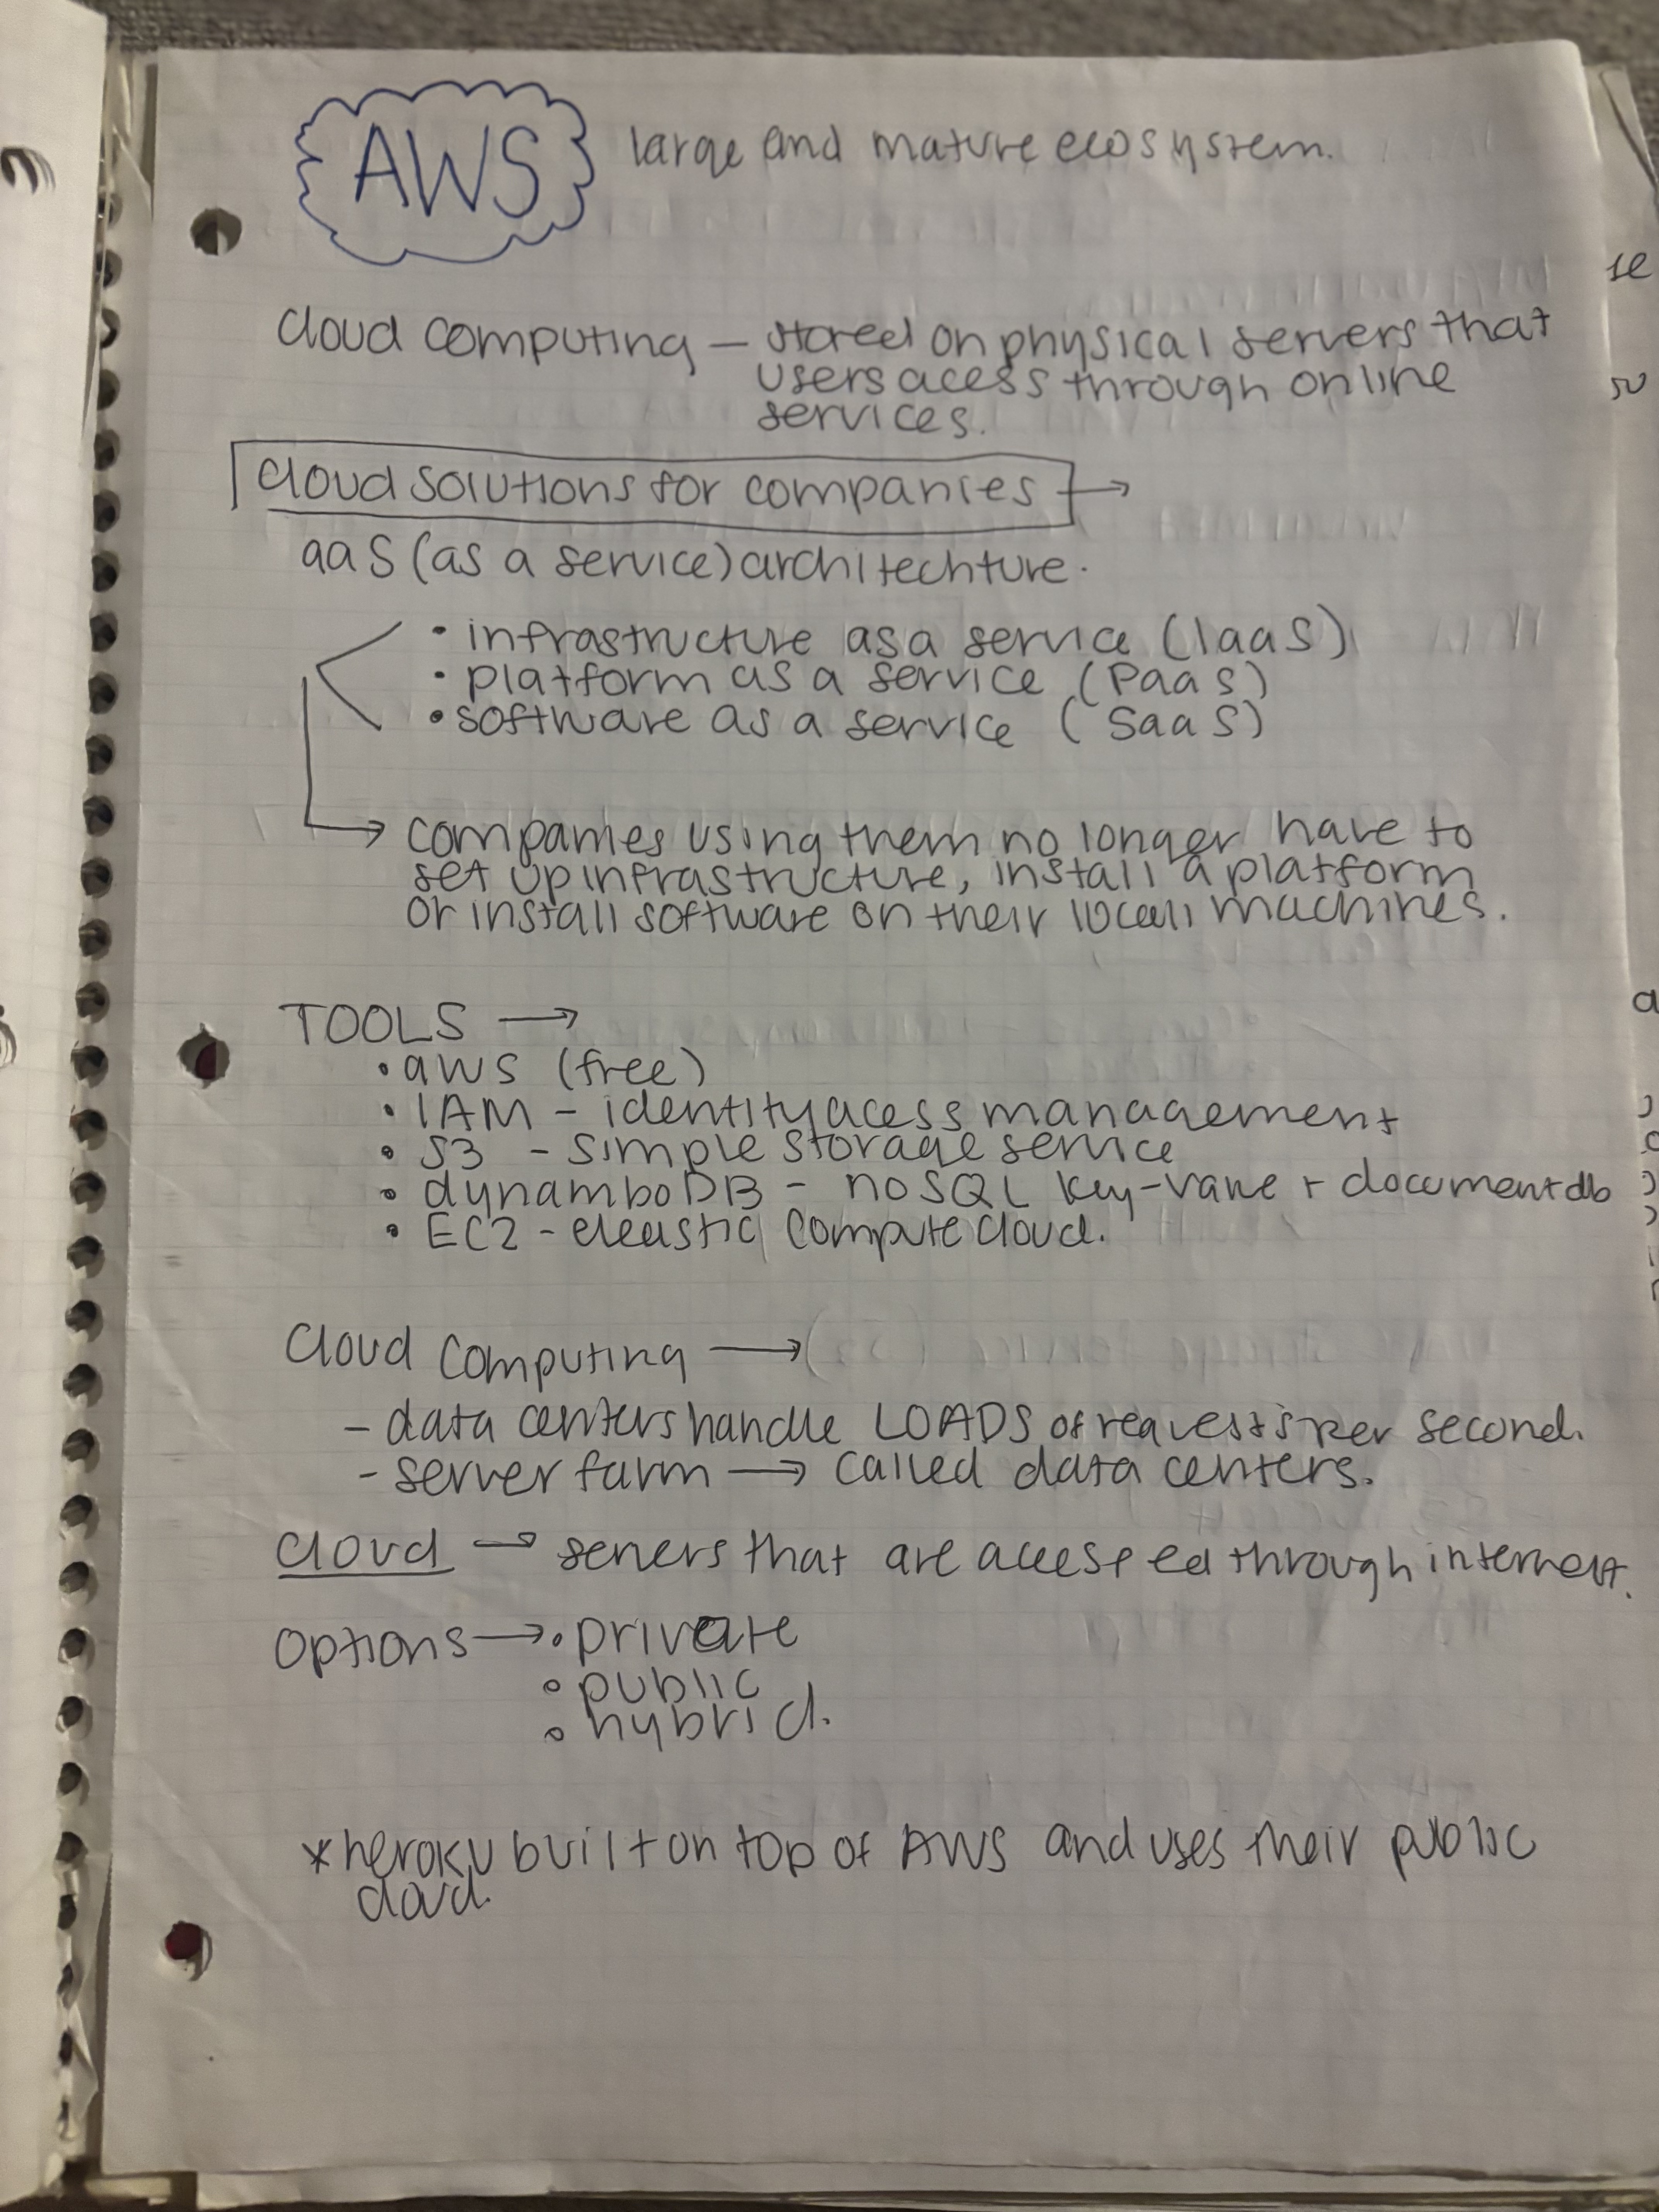 AWS large and mature ecosystem.
Cloud computing — stored on physical servers that
users acess through online
services.
Cloud solutions for companies →
aaS (as a service) architechture.
• infrastructure as a service (IaaS)
• platform as a service (PaaS)
• software as a service (SaaS)
→ companies using them no longer have to
set up infrastructure, install a platform
or install software on their locall machines.
TOOLS →
• aws (free)
• IAM - identity acess management
• S3 - simple storage service
• dynamboDB - noSQL key-value + document db
• EC2 - eleastic compute cloud.
Cloud Computing →
- data centers handle LOADS of requests per second.
- server farm → called data centers.
Cloud → servers that are accessed through internet.
Options → • private
• public
• hybrid.
* heroku built on top of AWS and uses their public
cloud.